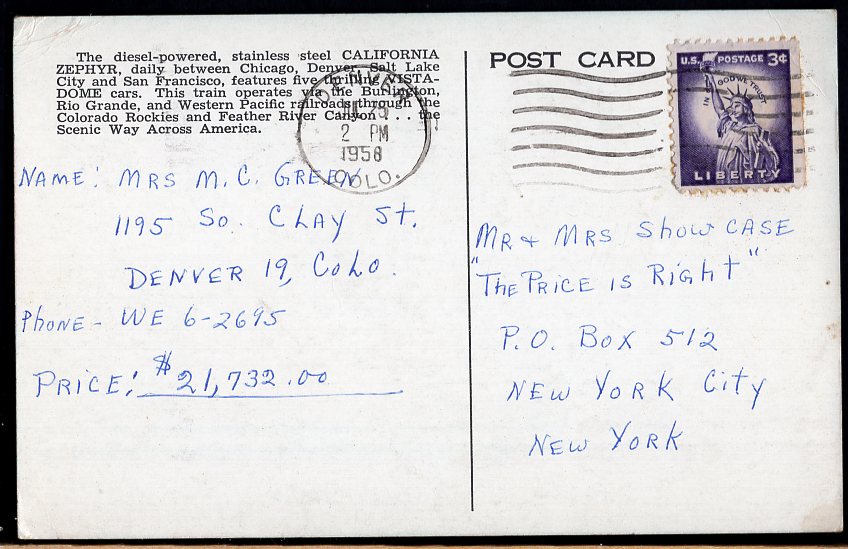 The diesel-powered, stainless steel CALIFORNIA
ZEPHYR, daily between Chicago, Denver, Salt Lake
City and San Francisco, features five thrilling VISTA-
DOME cars. This train operates via the Burlington,
Rio Grande, and Western Pacific railroads through the
Colorado Rockies and Feather River Canyon . . . the
Scenic Way Across America.
DENVER
2 PM
1958
COLO.
NAME: MRS M. C. GREEN
1195 So. CLAY St.
DENVER 19, COLO.
PHONE - WE 6-2695
PRICE: $21,732.00
POST CARD
U.S. POSTAGE 3¢
IN GOD WE TRUST
LIBERTY
MR & MRS SHOW CASE
"THE PRICE IS RIGHT"
P.O. BOX 512
NEW YORK CITY
NEW YORK